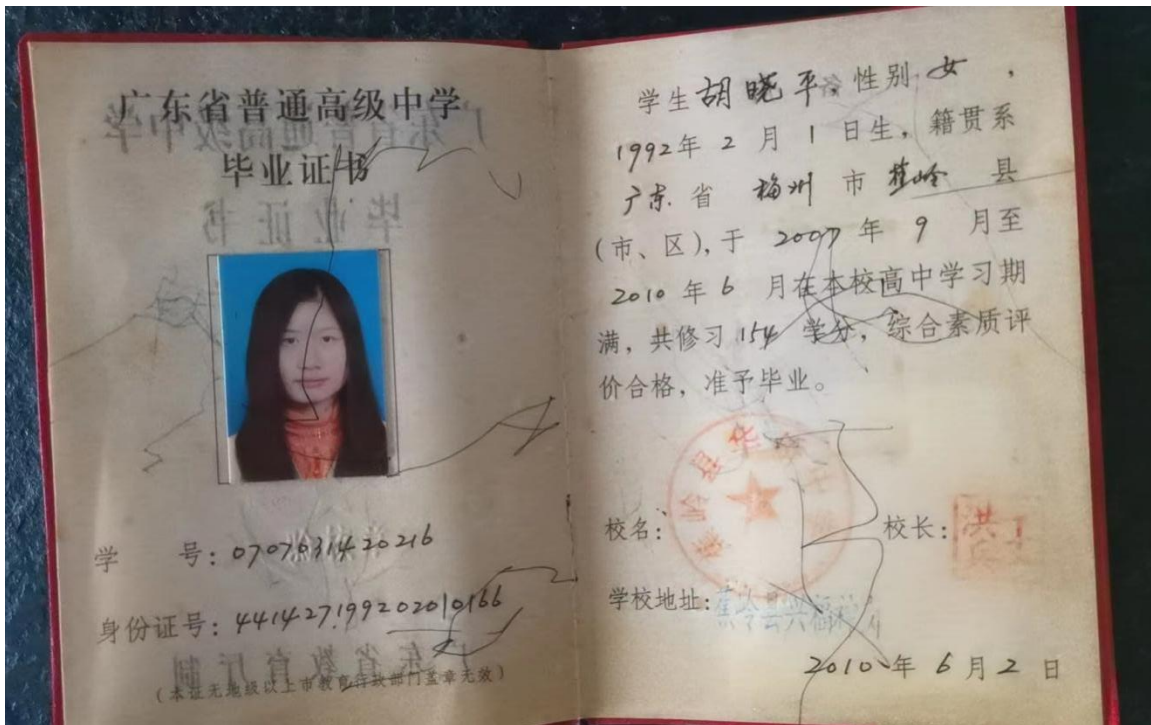 广东省普通高级中学
毕业证书
学 号：0707031420216
身份证号：441427199202010166
（本证无地级以上市教育行政部门盖章无效）
学生胡晓平，性别女，
1992年2月1日生，籍贯系
广东省梅州市蕉岭县
(市、区)，于2007年9月至
2010年6月在本校高中学习期
满，共修习154学分，综合素质评
价合格，准予毕业。
蕉岭县华
校名：
校长：洪
学校地址：蕉岭县兴福
2010年6月2日
广东省教育厅制